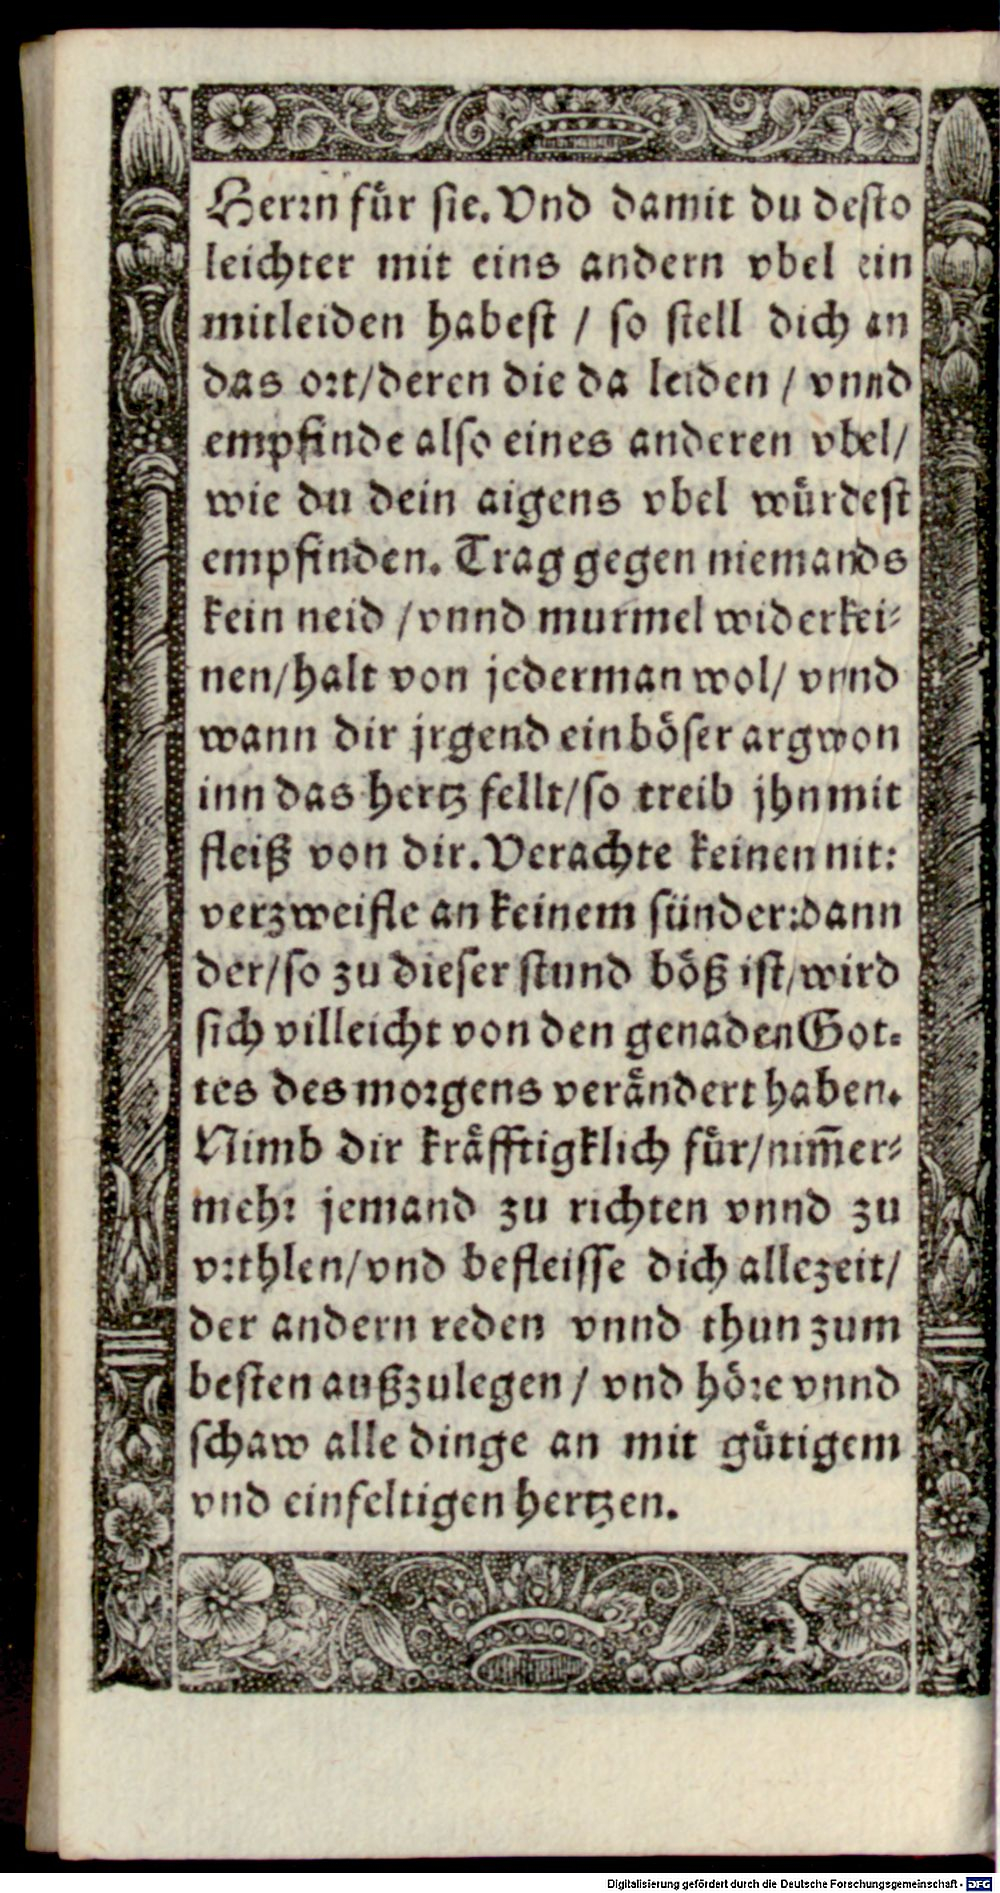 Herꝛn fuͤr sie. Vnd damit du desto
leichter mit eins andern vbel ein
mitleiden habest / so stell dich an
das oꝛt/deren die da leiden / vnnd
empfinde also eines anderen vbel/
wie du dein aigens vbel wuͤrdest
empfinden. Trag gegen niemands
kein neid /vnnd murmel wider kei⸗
nen/halt von jederman wol/ vnnd
wann dir jrgend ein boͤser argwon
inn das hertz fellt/so treib jhn mit
fleiß von dir. Verachte keinen nit:
verzweifle an keinem sünder:dann
der/so zu dieser stund boͤß ist/wird
sich villeicht von den genaden Got⸗
tes des moꝛgens veraͤndert haben.
Nimb dir kraͤfftigklich fuͤr/nim̄er⸗
mehꝛ jemand zu richten vnnd zu
vꝛthlen/vnd befleisse dich allezeit/
der andern reden vnnd thun zum
besten außzulegen / vnd hoͤꝛe vnnd
schaw alle dinge an mit guͤtigem
vnd einfeltigen hertzen.
Digitalisierung gefördert durch die Deutsche Forschungsgemeinschaft - DFG